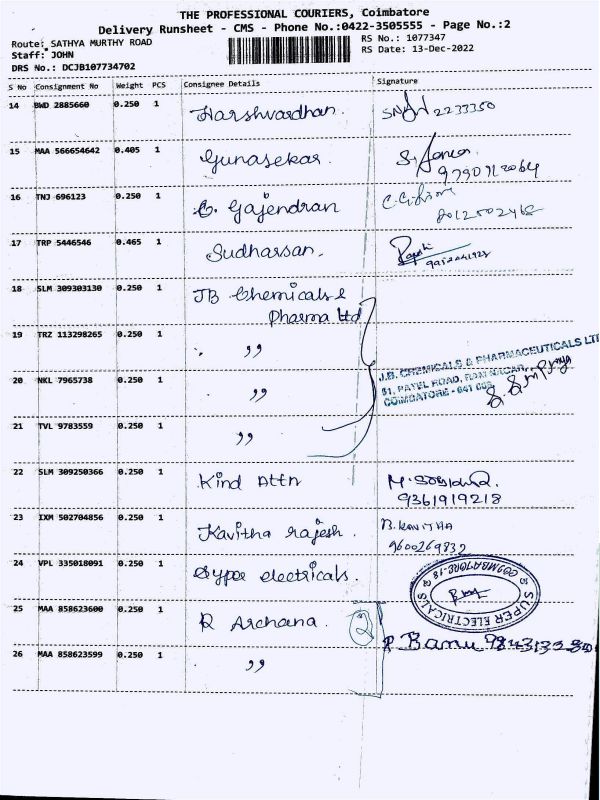 THE PROFESSIONAL COURIERS, Coimbatore
Delivery Runsheet - CMS - Phone No.:0422-3505555 - Page No.:2
Route: SATHYA MURTHY ROAD
RS No.: 1077347
Staff: JOHN
RS Date: 13-Dec-2022
DRS No.: DCJB107734702
S No Consignment No Weight PCS Consignee Details Signature
14 BWD 2885660 0.250 1 Harshvardhan. 2233350
15 MAA 566654642 0.405 1 Gunasekar.
16 TNJ 696123 0.250 1 G. Gajendran
17 TRP 5446546 0.465 1 Sudharsan.
18 SLM 309303130 0.250 1 JB Chemicals &
Pharma Ltd
19 TRZ 113298265 0.250 1 . ,,
J.B. CHEMICALS & PHARMACEUTICALS LT
51, PATEL ROAD, RAM NAGAR,
COIMBATORE - 641 009
20 NKL 7965738 0.250 1 ,,
21 TVL 9783559 0.250 1 ,,
22 SLM 309250366 0.250 1 Kind Attn
9361919218
23 IXM 502704856 0.250 1 Kavitha rajesh. B. KAVITHA
9600269832
24 VPL 335018091 0.250 1 Syper electricals.
SUPER ELECTRICALS
COIMBATORE-18
25 MAA 858623600 0.250 1 R Archana. 2
R Banu
26 MAA 858623599 0.250 1 ,,